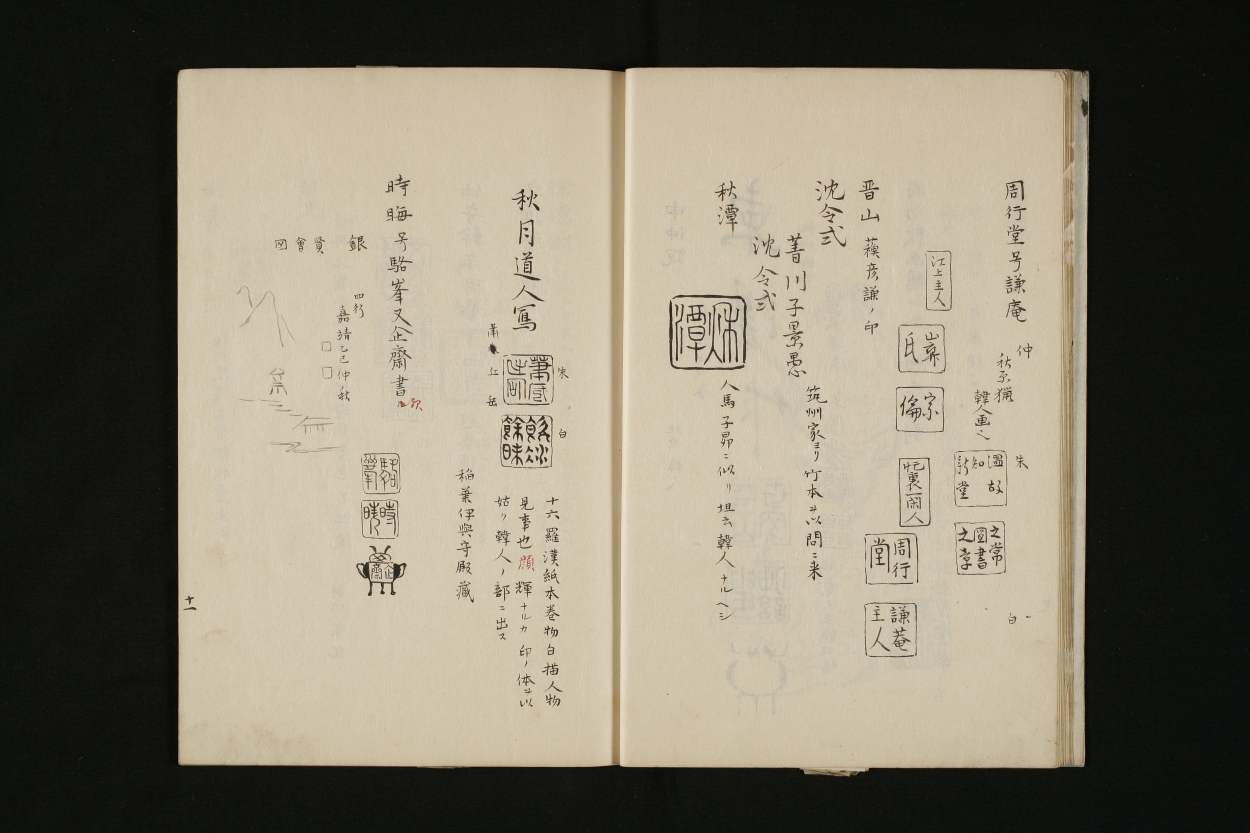 周行堂号謙庵
仲
秋原猟
韓人画之
朱
温故
知
新堂
之常
圖書
之章
白
江上主人
氏
宗
倫
忙裏一閑人
周行
堂
謙菴
主人
晋山 蘓彦謙ノ印
沈令弐
菁川子景愚
筑州家ヨリ竹本ヲ以問ニ来
沈令弐
秋潭
秋
潭
人馬子昴ニ似リ坦云韓人ナルヘシ
秋月道人寫
朱
白
蕭
丘
岳
餘味
十六羅漢紙本巻物白描人物
見事也顔輝ナルカ印ノ体ヲ以
姑ク韓人ノ部ニ出ス
稲葉伊與守殿藏
時晦号駱峯又企齋書
駱
峯
時
晦
企
齋
銀
四行
嘉靖乙巳仲秋
賢會図
十一